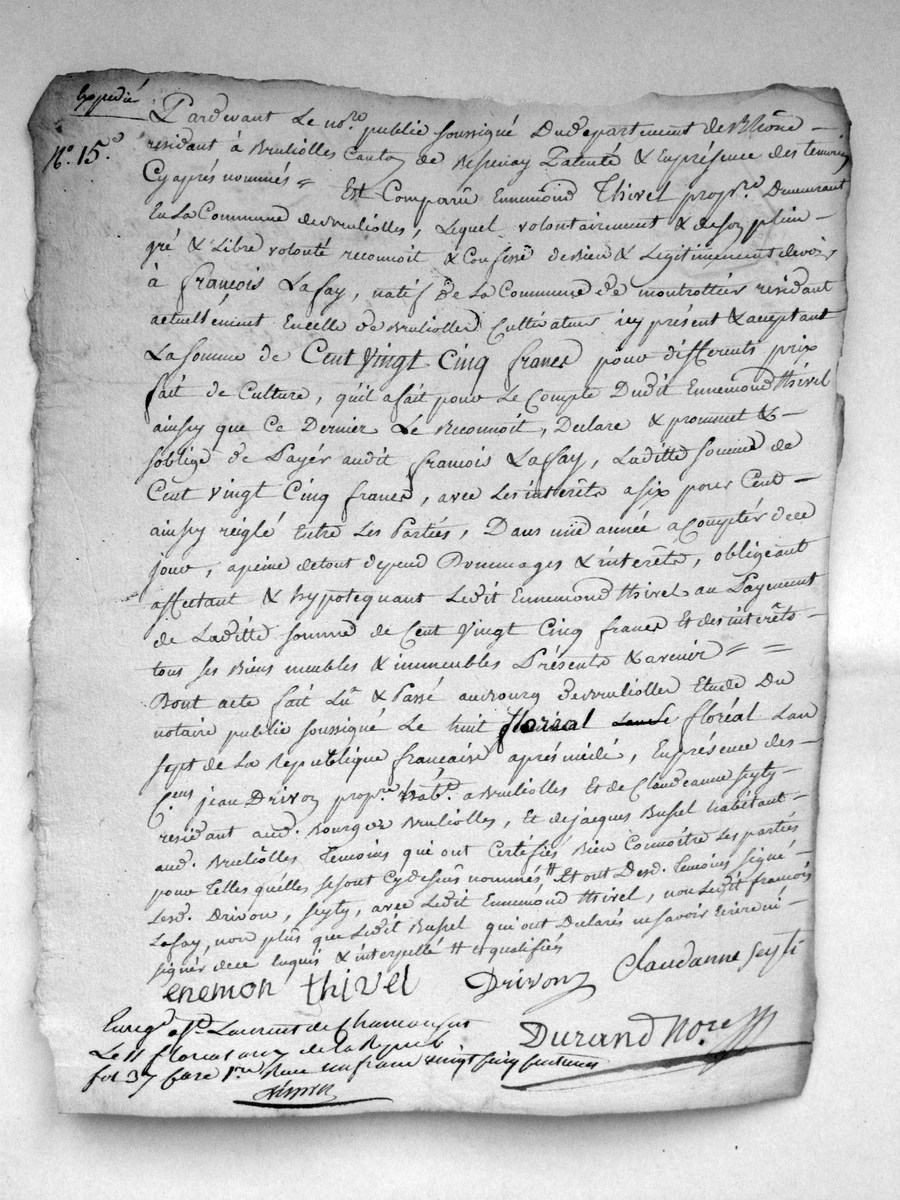 Expedié
N.o 15.e
Pardevant Le no.re public soussigné Du departement du Rhône –
residant à Brulliolles Canton de Bessenay Patenté & En presence des temoins
Cy après nommés = Est Comparû Ennemond Thivel propre. Demeurant
En La Commune de Brulliolles, Lequel volontairement & de son plein –
gré & Libre volonté reconnoit & Confesse de Bien & Legitimement devoir
à françois Lafay, natif de La Commune de montrottier residant
actuellement En celle de Brulliolles Cultivateur icy présent & acceptant
La somme de Cent Vingt Cinq francs pour differents prix
fait de Culture, quil a fait pour Le Compte Dudit Ennemond thivel
ainsy que Ce Dernier Le Reconnoit, Declare & prommet & –
soblige de Payér audit francois Laffay, Laditte somme de
Cent Vingt Cinq francs, avec Les interêts a six pour Cent –
ainsy réiglé Entre Les Parties, Dans une année a Comptér de ce
jour, a peine de tout depend Dommages & interêts, obligeant
affectant & hypotequant Ledit Ennemond thivel au Payement
de Laditte somme de Cent Vingt Cinq francs Et des interêts –
tous ses Biens meubles & immeubles Présents & avenir = =
Dont acte fait Lu & Passé au Bourg de Brulliolles Etude Du
notaire public soussigné Le huit floréal Lan
sept de La République francaise après midi, En présence des –
C.ens jean Drivon propre. hab.t a Brulliolles Et de Claudeanne seyty –
residant aud. Bourg de Brulliolles, Et de jacques Bussel habitant –
aud. Brulliolles Temoins qui ont Certifiés Bien Connoitre Les parties
pour Telles quelles se sont Cy dessus nommés # Et ont Desd. Temoins signé –
Lesd. Drivon, seyty, avec Ledit Ennemond thivel, non Ledit francois
Lafay, non plus que Ledit Bussel qui ont Declarés ne savoir Ecrire ni –
signér de ce Enquis & interpellé # et qualifiés
enemon thivel Drivon Claudanne Seyti
Durand No.re
Enreg.é a S.t Laurent de Chamousset
Le 11 floreal an 7 de la Repub
fol 37 Case 1.re Recu un franc vingt cinq centimes